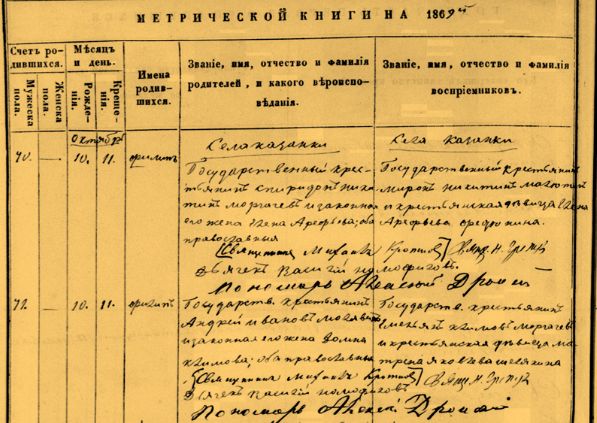 МЕТРИЧЕСКОЙ КНИГИ НА 1869й
Счетъ родившихся.
Мужеска пола.
Женска пола.
Мѣсяцъ и день.
Рожденія.
Крещенія.
Имена родившихся.
Званіе, имя, отчество и фамилія
родителей, и какого вѣроиспо-
вѣданія.
Званіе, имя, отчество и фамилія
воспріемниковъ.
Октябрь
Села казанки
Села казанки
70. — 10. 11. филипъ
Государственный крес-
тьянинъ спиридонъ ники-
тинъ моргачевъ и законная
его жена Арефьева; оба
православныя
Государственный крестьянинъ
миронъ никитинъ
и крестьянская дѣвица
Арефьева
Священникъ Михаилъ Кротковъ
Дьячекъ Василій
Пономарь Алексѣй
71. — 10. 11. филипъ
Государств. крестьянинъ
Андрей ивановъ
и законная его жена домна
климова; оба православныя
Государств. крестьянинъ
климовъ моргачевъ
и крестьянская дѣвица ма-
трена яковлева
Священникъ Михаилъ Кротковъ
Дьячекъ Василій
Пономарь Алексѣй